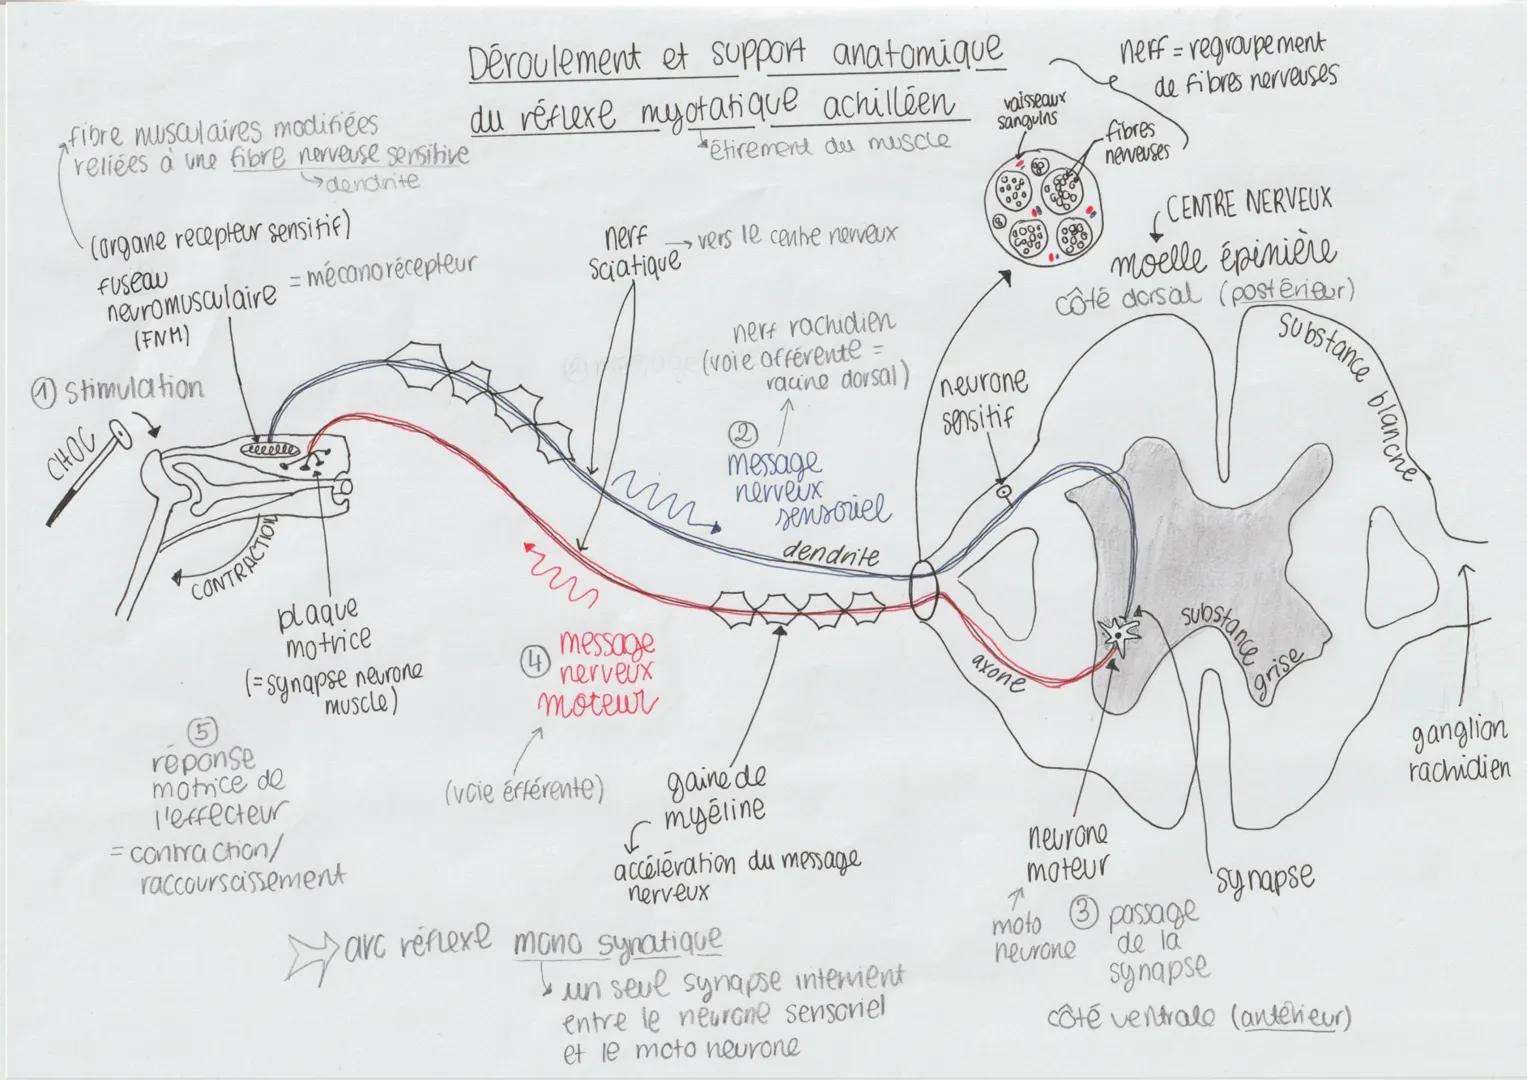 Déroulement et support anatomique
du réflexe myotatique achilléen
étirement du muscle
nerf = regroupement
de fibres nerveuses
vaisseaux
sanguins
fibres
nerveuses
fibre musculaires modifiées
reliées à une fibre nerveuse sensitive
dendrite
(organe recepteur sensitif)
fuseau
neuromusculaire
(FNM)
= mécanorécepteur
nerf
sciatique
vers le centre nerveux
CENTRE NERVEUX
moelle épinière
côté dorsal (postérieur)
substance blanche
nerf rachidien
(voie afférente =
racine dorsal)
neurone
sensitif
① stimulation
CHOC
②
message
nerveux
sensoriel
dendrite
CONTRACTION
plaque
motrice
(= synapse neurone
muscle)
④
message
nerveux
moteur
(voie éfférente)
axone
substance
grise
ganglion
rachidien
⑤
réponse
motrice de
l'effecteur
= contraction/
raccourcissement
gaine de
myéline
accélération du message
nerveux
neurone
moteur
moto
neurone
synapse
③ passage
de la
synapse
côté ventrale (antérieur)
arc réflexe mono synatique
un seul synapse intervient
entre le neurone sensoriel
et le moto neurone